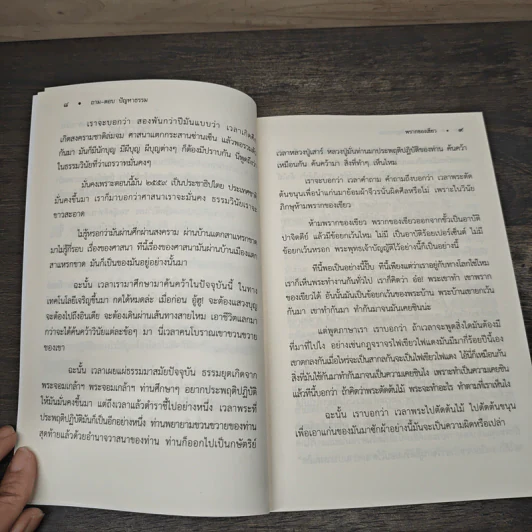 ๘ • ถาม-ตอบ ปัญหาธรรม
เราจะบอกว่า สองพันกว่าปีมันแบบว่า เวลาเกิด
เกิดสงครามชาติล่มจม ศาสนาแตกกระสานซ่านเซ็น แล้วพอรวม
กันมา มันก็มีนักบุญ มีผีบุญ ผีบุญต่างๆ ก็ต้องมีปราบกัน นี่พูดถึง
ในธรรมวินัยที่ว่าเถรวาทมั่นคงๆ
มั่นคงเพราะตอนนี้มัน ๒๕๕๙ เป็นประชาธิปไตย ประเทศชาติ
มั่นคงขึ้นมา เราก็มาบอกว่าศาสนาเราจะมั่นคง ธรรมวินัยเราจะ
ขาวสะอาด
ไม่รู้หรอกว่ามันผ่านศึกผ่านสงคราม ผ่านบ้านแตกสาแหรกขาด
มาไม่รู้กี่รอบ เรื่องของศาสนา ทีนี้เรื่องของศาสนามันผ่านบ้านเมืองแตก
สาแหรกขาด มันก็เป็นของมันอยู่อย่างนั้นมา
ฉะนั้น เวลาเรามาศึกษามาค้นคว้าในปัจจุบันนี้ ในทาง
เทคโนโลยีเจริญขึ้นมา กดได้หมดล่ะ เมื่อก่อน อู้ฮู! จะต้องแสวงบุญ
จะต้องไปถึงอินเดีย จะต้องเดินผ่านเส้นทางสายไหม เอาชีวิตแลกมา
กว่าจะได้ค้นคว้าวินัยแต่ละข้อๆ มา นี่เวลาคนโบราณเขาขวนขวาย
ของเขา
ฉะนั้น เวลาเผยแผ่ธรรมมาสมัยปัจจุบัน ธรรมยุตเกิดจาก
พระจอมเกล้าฯ พระจอมเกล้าฯ ท่านศึกษาๆ อยากประพฤติปฏิบัติ
ให้มันมั่นคงขึ้นมา แต่ถึงเวลาแล้วตำราชี้ไปอย่างหนึ่ง เวลาพระที่
ประพฤติปฏิบัติมันก็เป็นอีกอย่างหนึ่ง ท่านพยายามขวนขวายของท่าน
สุดท้ายแล้วด้วยอำนาจวาสนาของท่าน ท่านก็ออกไปเป็นกษัตริย์
พรากของเขียว • ๙
เวลาหลวงปู่เสาร์ หลวงปู่มั่นท่านมาประพฤติปฏิบัติของท่าน ค้นคว้า
เหมือนกัน ค้นคว้ามา สิ่งที่ทำๆ เห็นไหม
เราจะบอกว่า เวลาคำถาม คำถามถึงบอกว่า เวลาพระตัด
ต้นขนุนเพื่อนำแก่นมาย้อมผ้าจีวรนั้นผิดศีลหรือไม่ เพราะในวินัย
ภิกษุห้ามพรากของเขียว
ห้ามพรากของเขียว พรากของเขียวออกจากขั้วเป็นอาบัติ
ปาจิตตีย์ แล้วมีข้อยกเว้นไหม ไม่มี เป็นอาบัติร้อยเปอร์เซ็นต์ ไม่มี
ข้อยกเว้นหรอก พระพุทธเจ้าบัญญัติไว้อย่างนี้ก็เป็นอย่างนี้
ทีนี้พอเป็นอย่างนี้ปั๊บ ทีนี้เพียงแต่ว่าเราอยู่กับทางโลกใช่ไหม
เราก็เห็นพระทำงานกันทั่วไป เราก็คิดว่า อ๋อ! พระเขาทำ เขาพราก
ของเขียวได้ อันนั้นมันเป็นข้อยกเว้นของพระบ้าน พระบ้านเขายกเว้น
กันมา เขาทำกันมา ทำกันมาจนเป็นเคยชินน่ะ
แต่พูดภาษาเรา เราบอกว่า ถ้าเวลาจะพูดสิ่งใดมันต้องมี
ที่มาที่ไปไง อย่างเช่นกฎจราจรไฟเขียวไฟแดงมันมีมากี่ร้อยปีนี้เอง
เขาตกลงกันเมื่อไหร่จะเป็นสากลกันจะเป็นไฟเขียวไฟแดง ไอ้นี่ก็เหมือนกัน
สิ่งที่มันใช้กันมาทำกันมาจนเป็นความเคยชินไง เพราะทำเป็นความเคยชิน
แล้วทีนี้บอกว่า ถ้าคิดว่าพระตัดต้นไม้ พระจะทำอะไร ทำตามที่เราเห็นไง
ฉะนั้น เราบอกว่า เวลาพระไปตัดต้นไม้ ไปตัดต้นขนุน
เพื่อเอาแก่นของมันมาซักผ้าอย่างนี้มันจะเป็นความผิดหรือเปล่า